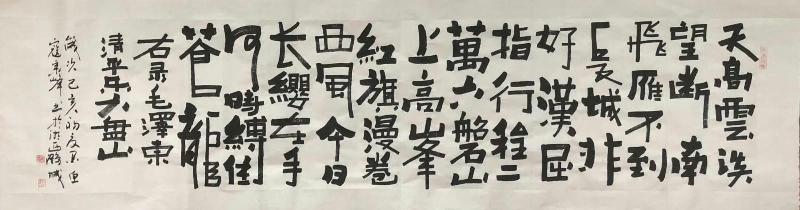 天高雲淡
望斷南
飛雁不到
長城非
好漢屈
指行程二
萬六盤山
上高峯
紅旗漫卷
西風今日
长纓在手
何時縛住
苍龍
右录毛澤東
清平乐六盘山
歲次己亥初夏
书於